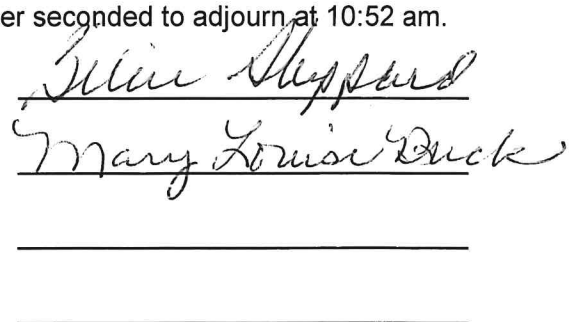 er seconded to adjourn at 10:52 am.
Billie Sheppard
Mary Louise Buck